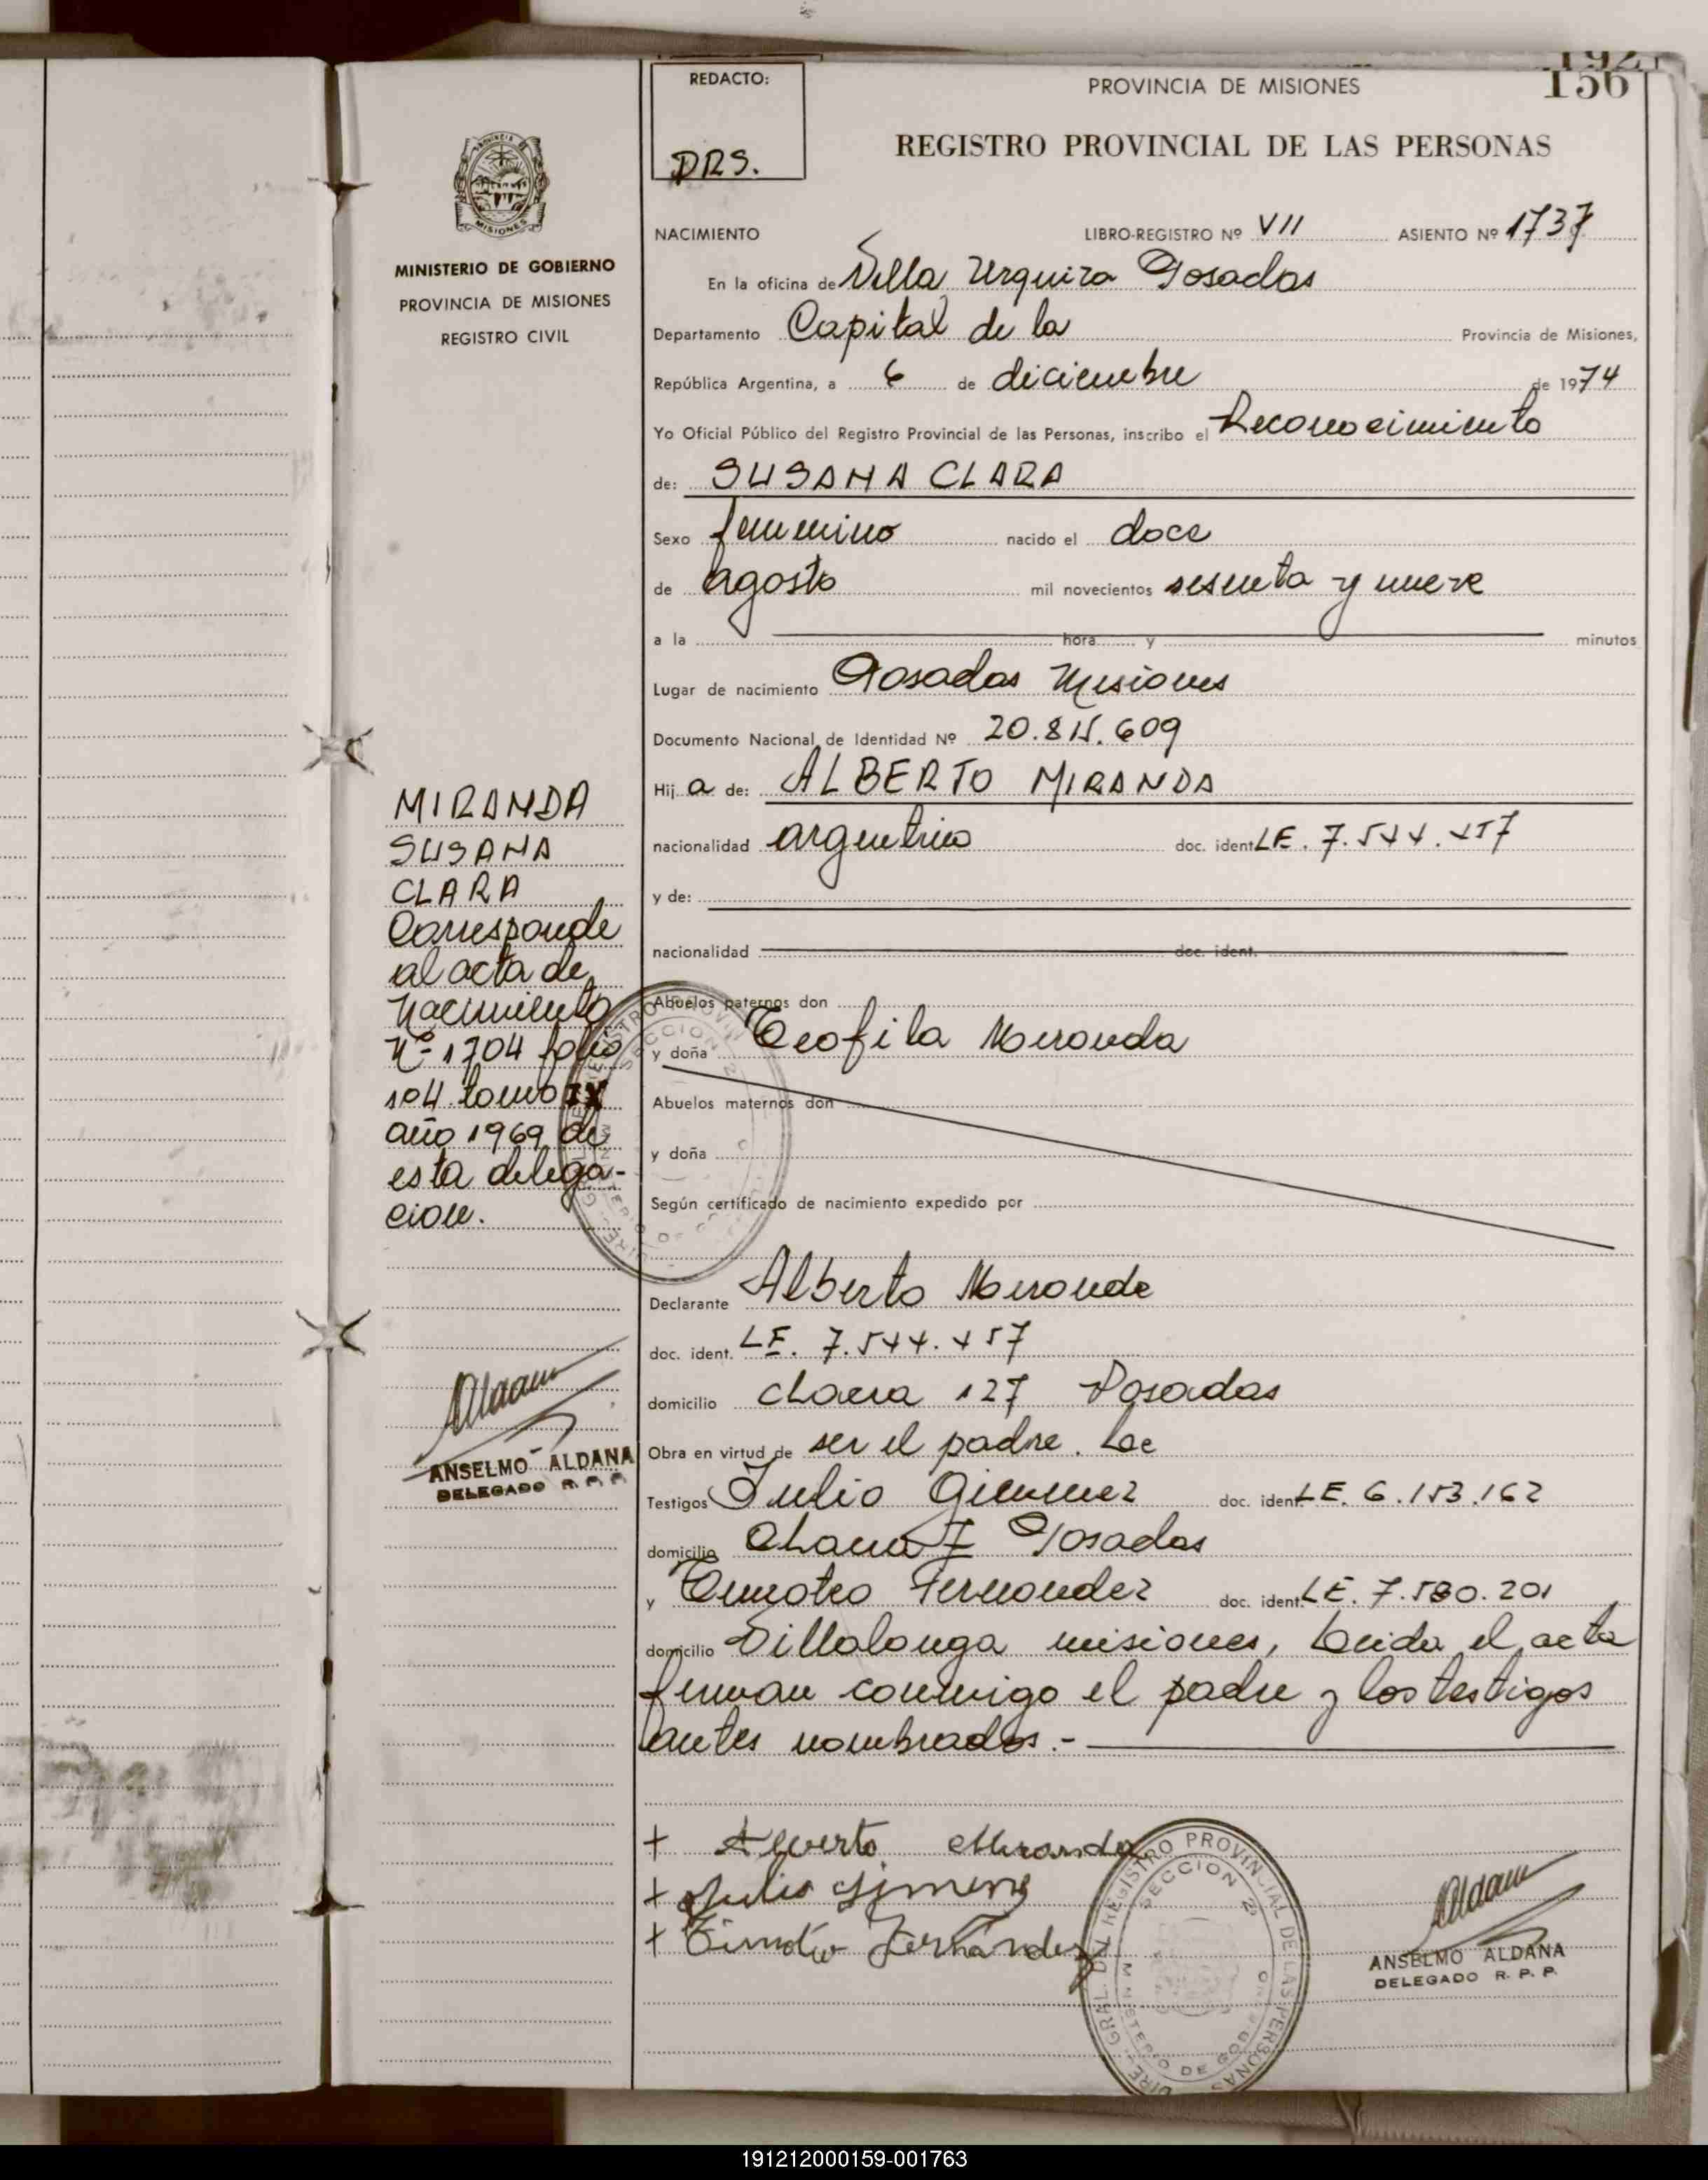 192
156
REDACTO:
DRS.
PROVINCIA DE MISIONES
REGISTRO PROVINCIAL DE LAS PERSONAS
MISIONES
MINISTERIO DE GOBIERNO
PROVINCIA DE MISIONES
REGISTRO CIVIL
NACIMIENTO LIBRO-REGISTRO Nº VII ASIENTO Nº 1737
En la oficina de Villa Urquiza Posadas
Departamento Capital de la Provincia de Misiones,
República Argentina, a 6 de diciembre de 1974
Yo Oficial Público del Registro Provincial de las Personas, inscribo el Reconocimiento
de: SUSANA CLARA
Sexo femenino nacido el doce
de agosto mil novecientos sesenta y nueve
a la hora y minutos
Lugar de nacimiento Posadas Misiones
Documento Nacional de Identidad Nº 20.815.609
Hij a de: ALBERTO MIRANDA
nacionalidad argentino doc. ident. LE. 7.544.457
y de:
nacionalidad doc. ident.
Abuelos paternos don
y doña Teofila Miranda
Abuelos maternos don
y doña
Según certificado de nacimiento expedido por
Declarante Alberto Miranda
doc. ident. LE. 7.544.457
domicilio chacra 127 Posadas
Obra en virtud de ser el padre. Le
Testigos Julio Gimenez doc. ident. LE. 6.153.162
domicilio Chacra I Posadas
y Timoteo Fernandez doc. ident. LE. 7.580.201
domicilio Villalonga misiones, Leida el acta
firman conmigo el padre y los testigos
antes nombrados.-
MIRANDA
SUSANA
CLARA
Corresponde
al acta de
Nacimiento
Nº 1704 folio
104 tomo IX
año 1969 de
esta delega-
cion.
ANSELMO ALDANA
DELEGADO R. P. P.
+ Alverto Miranda
+ Julio Gimenez
+ Timoteo Fernández
DIRE. GRAL. DEL REGISTRO PROVINCIAL DE LAS PERSONAS
SECCION 2ª
MINISTERIO DE GOBIERNO
ANSELMO ALDANA
DELEGADO R. P. P.
191212000159-001763